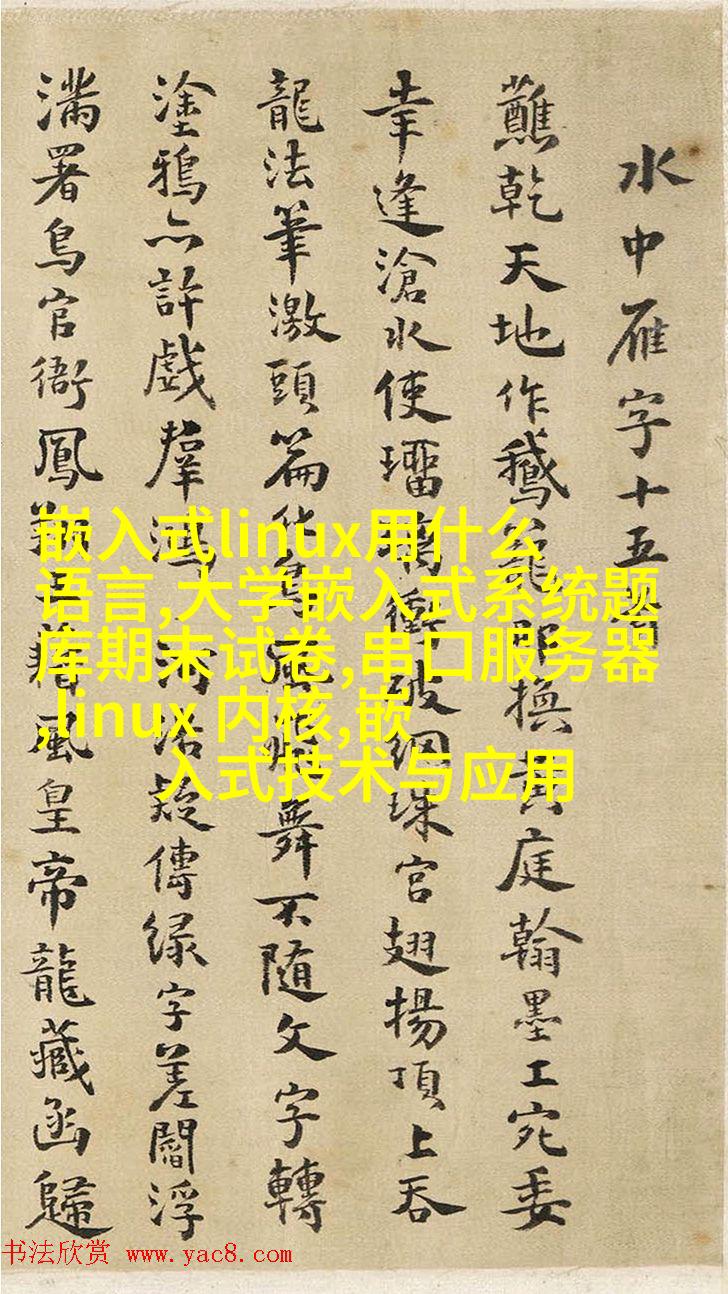 水中雁字十五
蘸乾天地作鵝籠即換黃庭翰墨工宛委
幸逢滄水使瑠璃衝破網珠宮翅揚頂上吞
龍法筆激頭篇化鳥風舞不隨文字轉
塗鴉亦許戲羣鴻疑傳綠字差閻浮
滿署鳥官銜鳳上籍風皇帝龍藏函歸
嵌入式linux用什么
语言,大学嵌入式系统题
库期末试卷,串口服务器
,linux 内核,嵌
入式技术与应用
书法欣赏 www.yac8.com